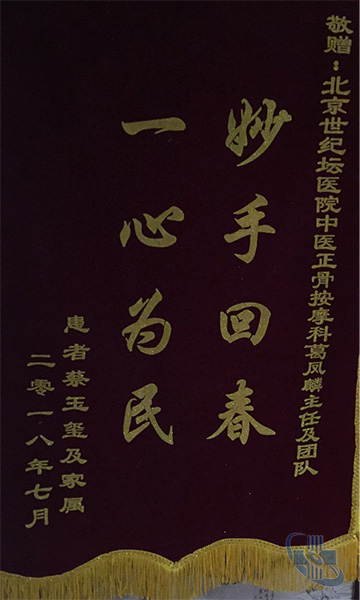 敬赠：北京世纪坛医院中医正骨按摩科葛凤麟主任及团队
妙手回春
一心为民
患者蔡玉玺及家属
二零一八年七月